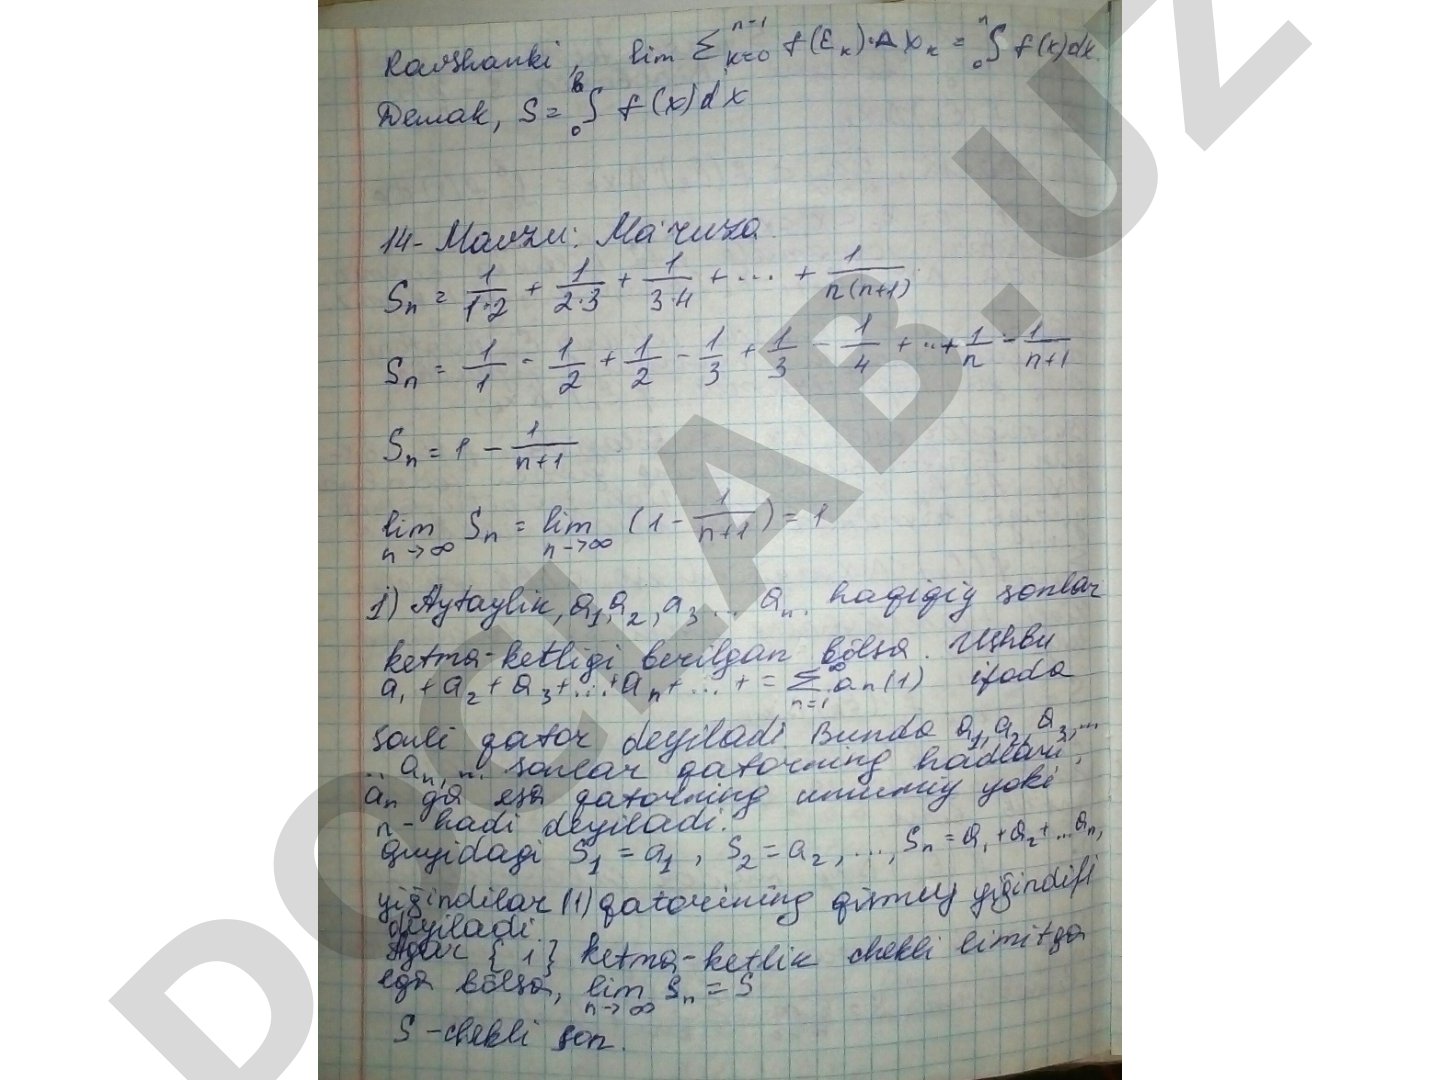 Ravshanki, lim Σ_{k=0}^{n-1} f(ξ_k)·Δx_k = ₀∫ⁿ f(x)dx.
Demak, S = ₀∫ᵇ f(x)dx
14-Mavzu: Ma'ruza
S_n = 1/(1·2) + 1/(2·3) + 1/(3·4) + ... + 1/(n(n+1))
S_n = 1/1 - 1/2 + 1/2 - 1/3 + 1/3 - 1/4 + ... + 1/n - 1/(n+1)
S_n = 1 - 1/(n+1)
lim_{n→∞} S_n = lim_{n→∞} (1 - 1/(n+1)) = 1
1) Aytaylik, a₁, a₂, a₃ ... a_n. haqiqiy sonlar
ketma-ketligi berilgan bõlsa. Ushbu
a₁ + a₂ + a₃ + ... + a_n + ... + = Σ_{n=1}^{∞} a_n (1) ifoda
sonli qator deyiladi. Bunda a₁, a₂, a₃, ...
.. a_n, ... sonlar qatorning hadlari,
a_n ga esa qatorning umumiy yoki
n-hadi deyiladi.
Quyidagi S₁ = a₁, S₂ = a₂, ..., S_n = a₁ + a₂ + ... a_n,
yiğindilar (1) qatorining qismiy yiğindisi
deyiladi.
Agar { 1 } ketma-ketlik chekli limitga
ega bõlsa, lim_{n→∞} S_n = S
S-chekli son.
DOCLAB.UZ